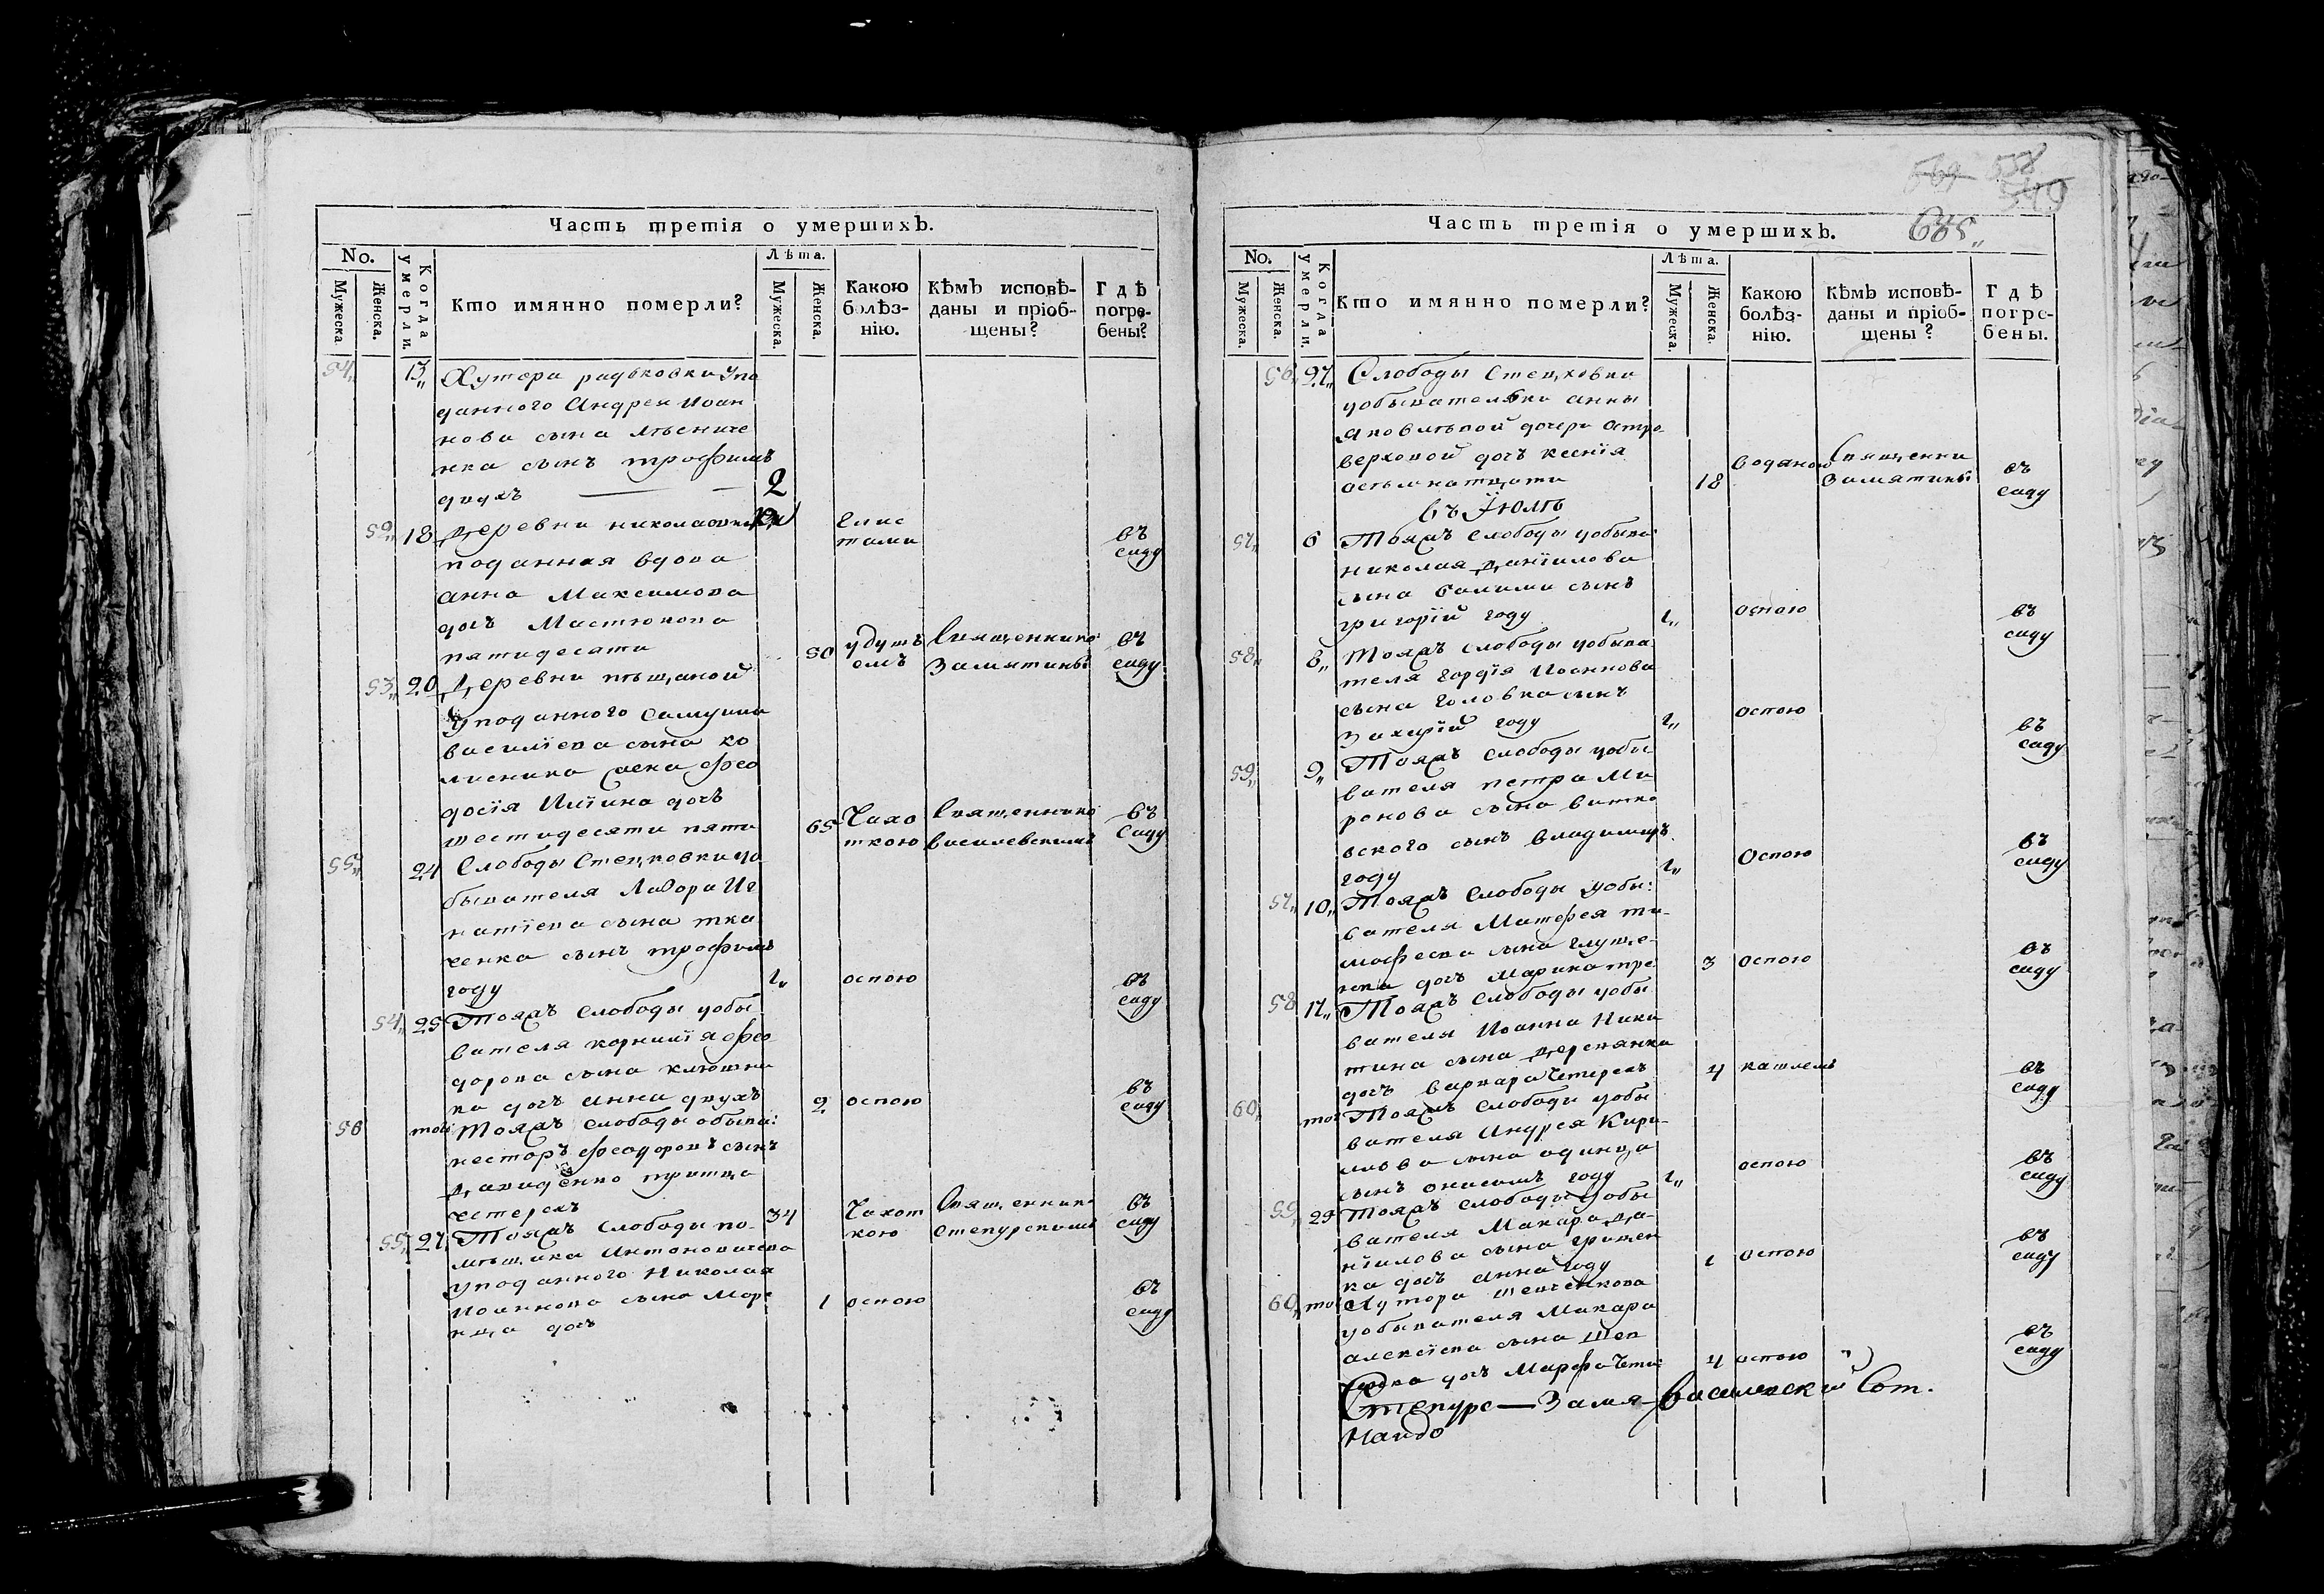 Часть третія о умершихъ.
No.
Мужеска.
Женска.
Когда умерли.
Кто имянно померли?
Лѣта.
Мужеска.
Женска.
Какою болѣз-
нію.
Кѣмъ исповѣ-
даны и пріоб-
щены?
Гдѣ
погре-
бены?
54,, 13,, Хутора радьковки упо
данного Андрея Иоан
нова сына
нка сынъ трофимъ
двухъ — 2
глис
тами
въ
саду
52,, 18 Деревни николаовки
поданная вдова
анна Максимова
дочъ Мастюкова
пятидесяти 50
удуш
емъ
Священнико
Замятины
въ
саду
53,, 20 Деревни пѣщаной
уподанного самуила
василіева сына ко
лисника жена фео
досія Иліина дочъ
шестидесяти пяти 65
Чахо
ткою
Священнико
василевскимъ
въ
саду
55,, 24 Слободы Стецковки уо
бывателя Лавора Иг
натіева сына тка
ченка сынъ трофимъ
году 1,,
оспою
въ
саду
54,, 25 Тояжъ слободы уобы
вателя корнилія фео
дорова сына клюшни
ка дочъ анна двухъ 2
оспою
въ
саду
56 тож Тояжъ слободы обыва:
несторъ феодоровъ сынъ
Давиденко тритцо
четерехъ 34
Чахот
кою
Священнико
Степурскимъ
въ
саду
55,, 27 Тояжъ слободы по
мѣщика Антоновичева
уподанного Николая
Иоаннова сына Море
нца дочъ 1
оспою
въ
саду
569 558
549
645,,
Часть третія о умершихъ.
No.
Мужеска.
Женска.
Когда умерли.
Кто имянно померли?
Лѣта.
Мужеска.
Женска.
Какою
болѣз-
нію.
Кѣмъ исповѣ-
даны и пріоб-
щены?
Гдѣ
погре-
бены.
56,, 27,, Слободы Стецковки
уобывателяки анны
Яковлевой дочери остро
верховой дочъ ксенія
осьмнатцати 18
водяною
Священни
Замятины
въ
саду
въ Іюлѣ
57,, 6 Тояжъ слободы уобыва
николая Даніилова
сына сынъ
григорій году 1,,
оспою
въ
саду
58,, 8,, Тояжъ слободы уобыва
теля гордія Иоаннова
сына головка сынъ
Захарій году 1,,
оспою
въ
саду
59,, 9,, Тояжъ слободы уобы
вателя петра Ми
ронова сына витко
вского сынъ владимиръ
году 1,,
Оспою
въ
саду
57,, 10,, Тояжъ слободы уобы:
вателя Матфея ти-
мофеева сына глуще-
нка дочъ Марина тре 3
оспою
въ
саду
58 11,, Тояжъ слободы уобы
вателя Иоанна Ники
тина сына Деревянки
дочъ варвара Четерехъ 4
кашлемъ
въ
саду
60,, тож Тояжъ слободы уобы
вателя Андрея Кири-
лова сына одинца
сынъ онисимъ году 1,,
оспою
въ
саду
59,, 29 Тояжъ слободы уобы
вателя Макара Да-
ніилова сына гришен
ка дочъ Анна году 1
оспою
въ
саду
60,, тож Хутора шевченкова
уобывателя Макара
алексіева сына Шев
ченка дочъ Марфа Чети: 4
оспою
въ
саду
Степурс— Замя- василевский Сот.